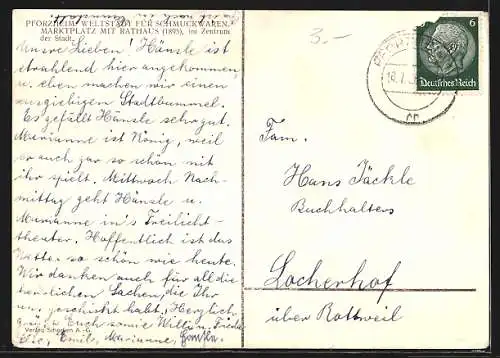 PFORZHEIM WELTSTADT FÜR SCHMUCKWAREN.
MARKTPLATZ MIT RATHAUS (1895), im Zentrum
der Stadt.
Unsre Lieben! Hänsle ist
strahlend hier angekommen
u. eben machen wir einen
ausgiebigen Stadtbummel.
Es gefällt Hänsle sehr gut.
Marianne ist König, weil
er auch gar so schön mit
ihr spielt. Mittwoch Nach-
mittag geht Hänsle u.
Marianne in's Freilicht-
theater. Hoffentlich ist das
Wetter so schön wie heute.
Wir danken auch für all die
herrlichen Sachen, die Ihr
uns geschickt habt. Herzlich
Euch sowie Willi u.
Verlag Schocken A.-G.
Emil, Marianne,
3.-
6
Deutsches Reich
18.7.
Fam.
Hans Jäckle
Buchhalters
Locherhof
über Rottweil